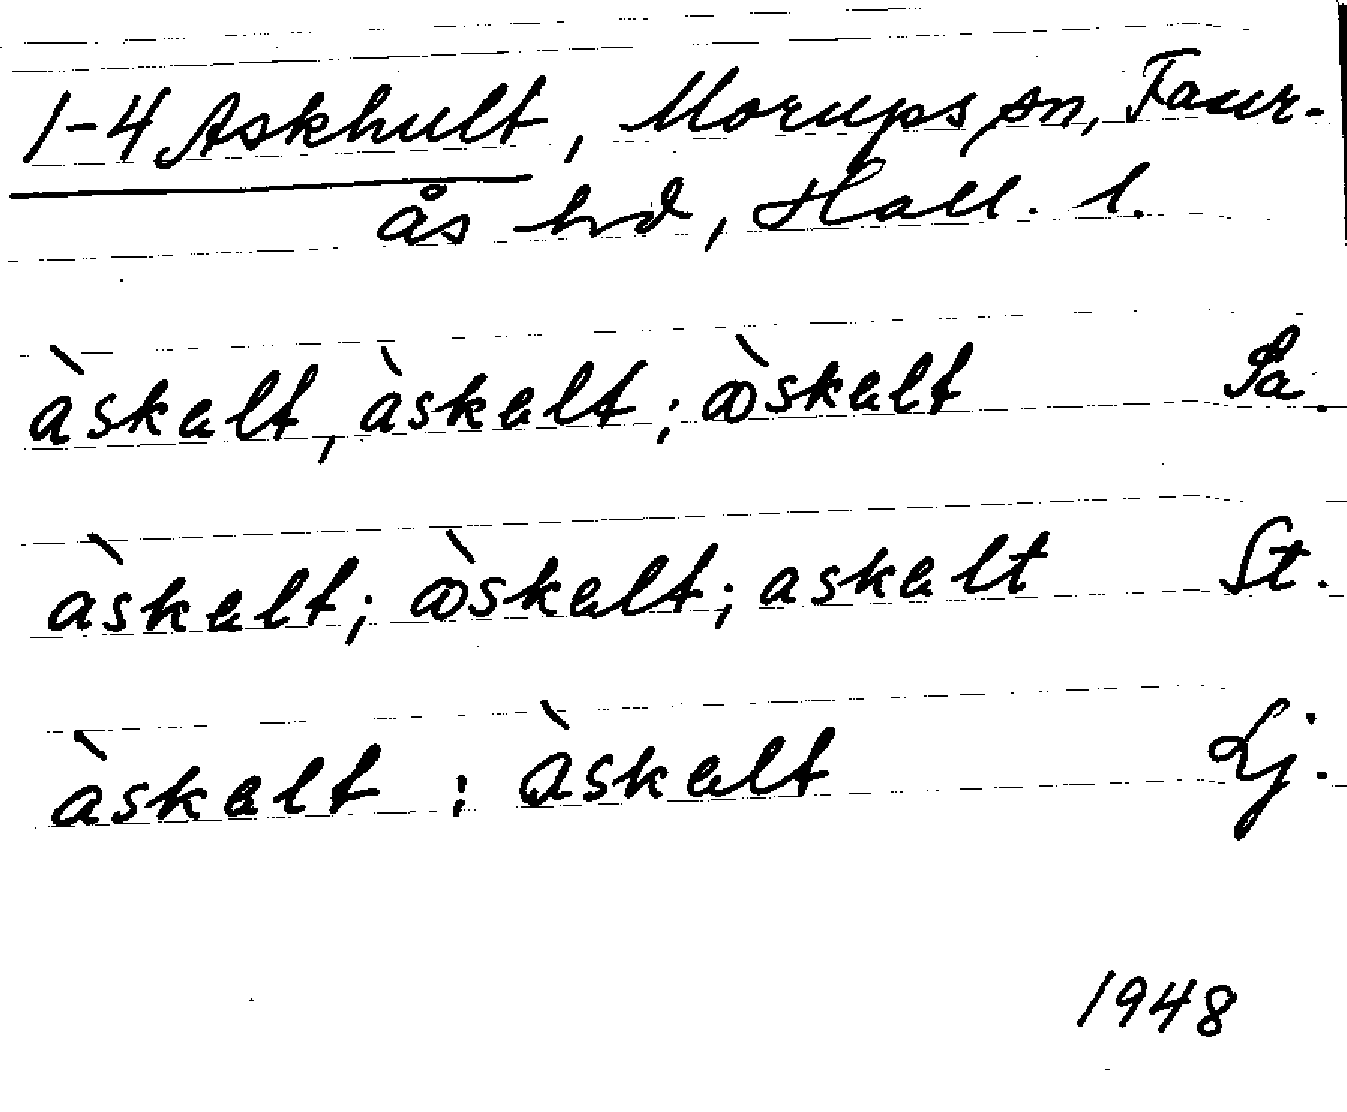 1-4 Askhult, Morups sn, Faur-
ås hd, Hall. l.
àskelt, àskelt; åskelt Sa.
àskelt; åskelt; askelt St.
àskelt; àskelt Lj.
1948